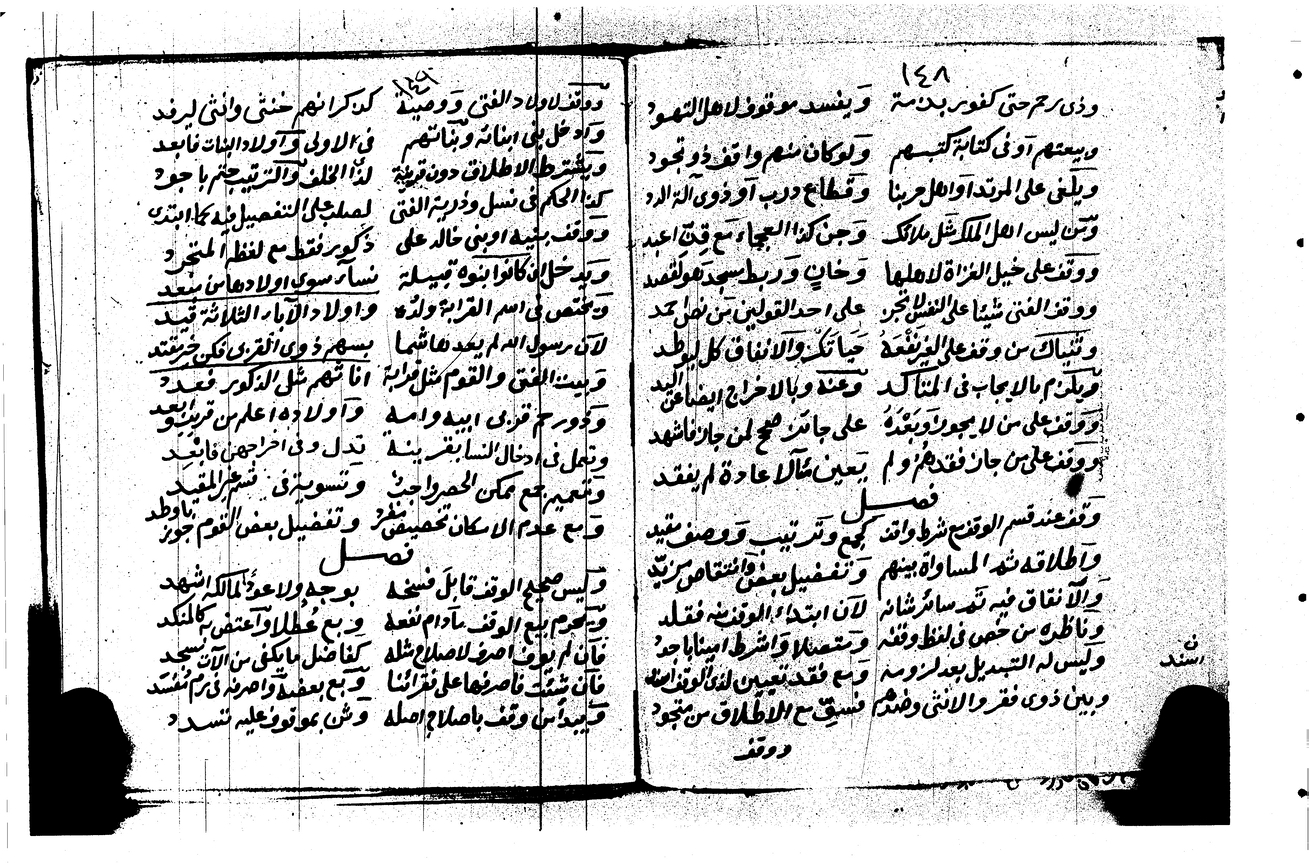 ١٤٨
وذى رحم حتى كفور بذمة ويفسد موقوف لاهل التهود
وبيعتهم او فى كتابة كتبهم ولو كان منهم واقف ذو تهود
ويلغى على المرتد او اهل حربنا وقطاع درب او ذوى آلة الدد
ومن ليس اهل الملك مثل ملائك وجن كذا العجماء مع قن اعبد
ووقف على خيل الغزاة لاهلها وخان وربط مسجد هو لقصد
ووقف الفتى شيئا على النفس لا تجز على احد القولين من نص احمد
وثنياك من وقف على الغير نفعه حياتك والانفاق كل ليوطد
ويلزم بالايجاب فى المتاكد وعنه وبالاخراج ايضا عن اليد
ووقف على من لا يجوز وبعده على جائز صحح لمن جاز فاشهد
ووقف على من جاز فقدهم ولم يعين مآلا عادة لم يفقد
فصل
وقف عند قسم الوقف مع شرط واقف كجمع وترتيب ووصف مقيد
واطلاقه ثم المساواة بينهم وتفضيل بعض وانتقاص مزيد
والانفاق فيه ثم سائر شانه لان ابتداء الوقف منه فقلد
وناظره من خص فى لفظ وقفه ومتصلا واشرط امينا باجود
وليس له التبديل بعد لزومه ومع فقد تعيين لذى الوقف
وبين ذوى فقر والانثى وضدهم فسو مع الاطلاق من متجود
ووقف
اسند
١٤٩
ووقف لاولاد الفتى ووصية كذكرانهم خنثى وانثى ليرفد
وادخل بنى ابنائه وبناتهم فى الاولى واولاد البنات فابعد
ويشترط الاطلاق دون قرينة لذا الخلف والترتيب حتم باجود
كذا الحكم فى نسل وذرية الفتى لصلب على التفصيل فيه كما ابتدى
ووقف بنيه او بنى خالد على ذكور فقط مع لفظه المتجرد
ويدخل ان كانوا بنوه قبيلة نساء سوى اولادها من مبعد
ويختص فى اسم القرابة ولده واولاد الآباء الثلاثة قيد
لان رسول الله لم يعد هاشما بسهم ذوى القربى فكن خير مقتد
وبيت الفتى والقوم مثل قرابة اناثهم مثل الذكور فعدد
وذو رحم قربى ابيه وامه واولاده اعلم من قريب وابعد
وتعمل فى ادخال النسا بقرينة تدل وفى اخراجهن فابعد
وتعميم جمع ممكن الحصر واجب وتسوية فى قسم غير المقيد
ومع عدم الامكان تخصيص مفرد وتفضيل بعض القوم جوز باوطد
فصل
وليس صحيح الوقف قابل فسخه بوجه ولا عود لمالكه اشهد
ويحرم بيع الوقف مادام نفعه وبع عطلا واعتض به كالمنكد
فان لم يوف اصرف لاصلاح مثله كفاضل ما يكفى من الآت مسجد
فان شئت فاصرفها على فقرائنا وبع بعضه واصرفه فى رم مفسد
ويبدأ من وقف باصلاح اصله ومن بموقوف عليه تسدد